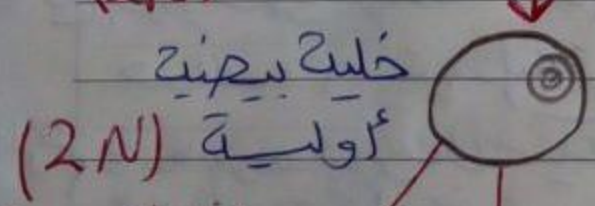 خلية بيضية
أولية (2N)